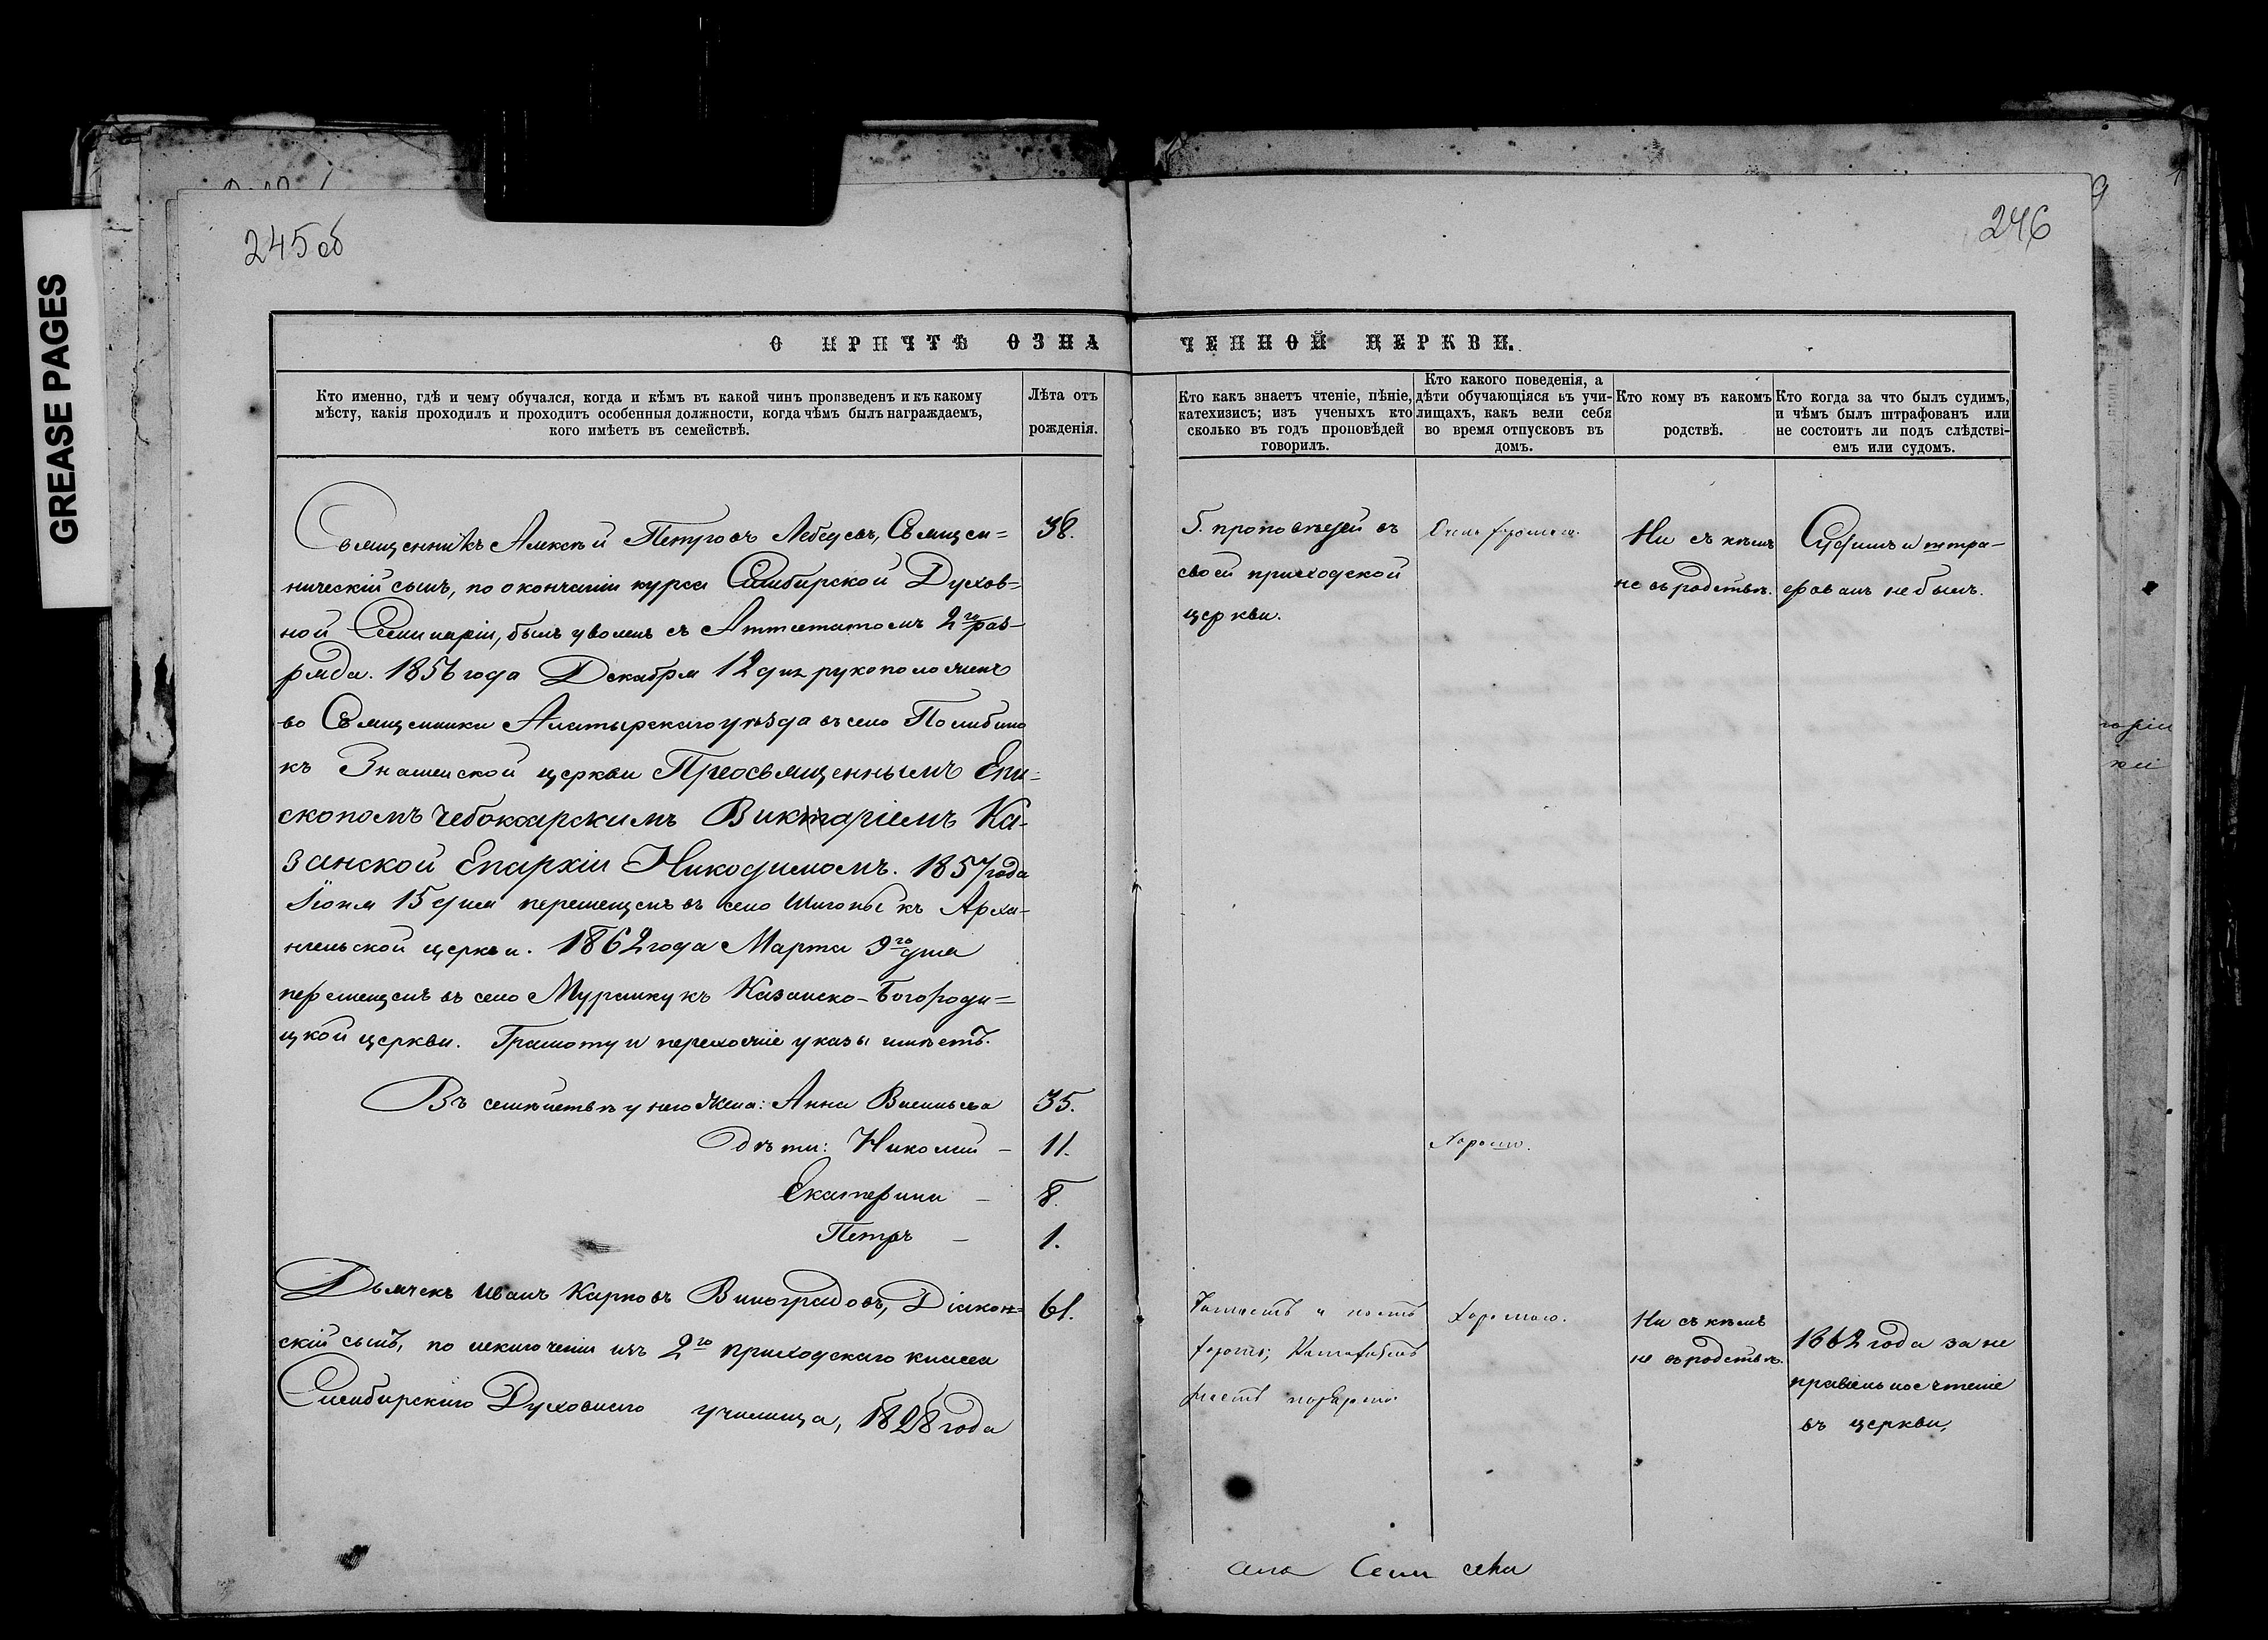 GREASE PAGES
245об
246
О ПРИЧТѢ ОЗНАЧЕННОЙ ЦЕРКВИ.
Кто именно, гдѣ и чему обучался, когда и кѣмъ въ какой чинъ произведенъ и къ какому
мѣсту, какія проходилъ и проходитъ особенныя должности, когда чѣмъ былъ награждаемъ,
кого имѣетъ въ семействѣ.
Лѣта отъ
рожденія.
Кто какъ знаетъ чтеніе, пѣніе,
катехизисъ; изъ ученыхъ кто
сколько въ годъ проповѣдей
говорилъ.
Кто какого поведенія, а
дѣти обучающіяся въ учи-
лищахъ, какъ вели себя
во время отпусковъ въ
домъ.
Кто кому въ какомъ
родствѣ.
Кто когда за что былъ судимъ,
и чѣмъ былъ штрафованъ или
не состоитъ ли подъ слѣдстві-
емъ или судомъ.
Священникъ Алексѣй Петровъ Лебедевъ, Священ=
ническій сынъ, по окончаніи курса Симбирской Духов=
ной Семинаріи, былъ уволенъ съ Аттестатомъ 2го раз-
ряда. 1856 года Декабря 12 дня рукоположенъ
во Священники Алатырскаго уѣзда въ село
къ Знаменской церкви Преосвященнымъ Епи=
скопомъ Чебоксарскимъ Викаріемъ Ка-
занской Епархіи Никодимомъ. 1857 года
Іюня 15 дня перемещенъ въ село Шигоны къ Арха-
нгельской церкви. 1862 года Марта 9го дня
перемещенъ въ село Муранку къ Казанско-Богороди=
цкой церкви. Грамоту и перехожіе указы имѣетъ.
38.
5. проповѣдей въ
своей приходской
церкви.
Очень хорошаго.
Ни съ кѣмъ
не въ родствѣ.
Судимъ и штра-
фованъ не былъ.
Въ семействѣ у него Жена: Анна Васильева 35.
Дѣти: Николай – 11.
Хорошо.
Екатерина – 8.
Петръ – 1.
Дьячекъ Иванъ Карповъ Виноградовъ, Діакон=
скій сынъ, по исключеніи изъ 2го приходскаго класса
Симбирскаго Духовнаго училища, 1828 года
61.
Читаетъ и поетъ
хорошо; Катихизисъ
знаетъ
Хорошаго.
Ни съ кѣмъ
не въ родствѣ.
1862 года за не
правильное чтеніе
въ церкви,